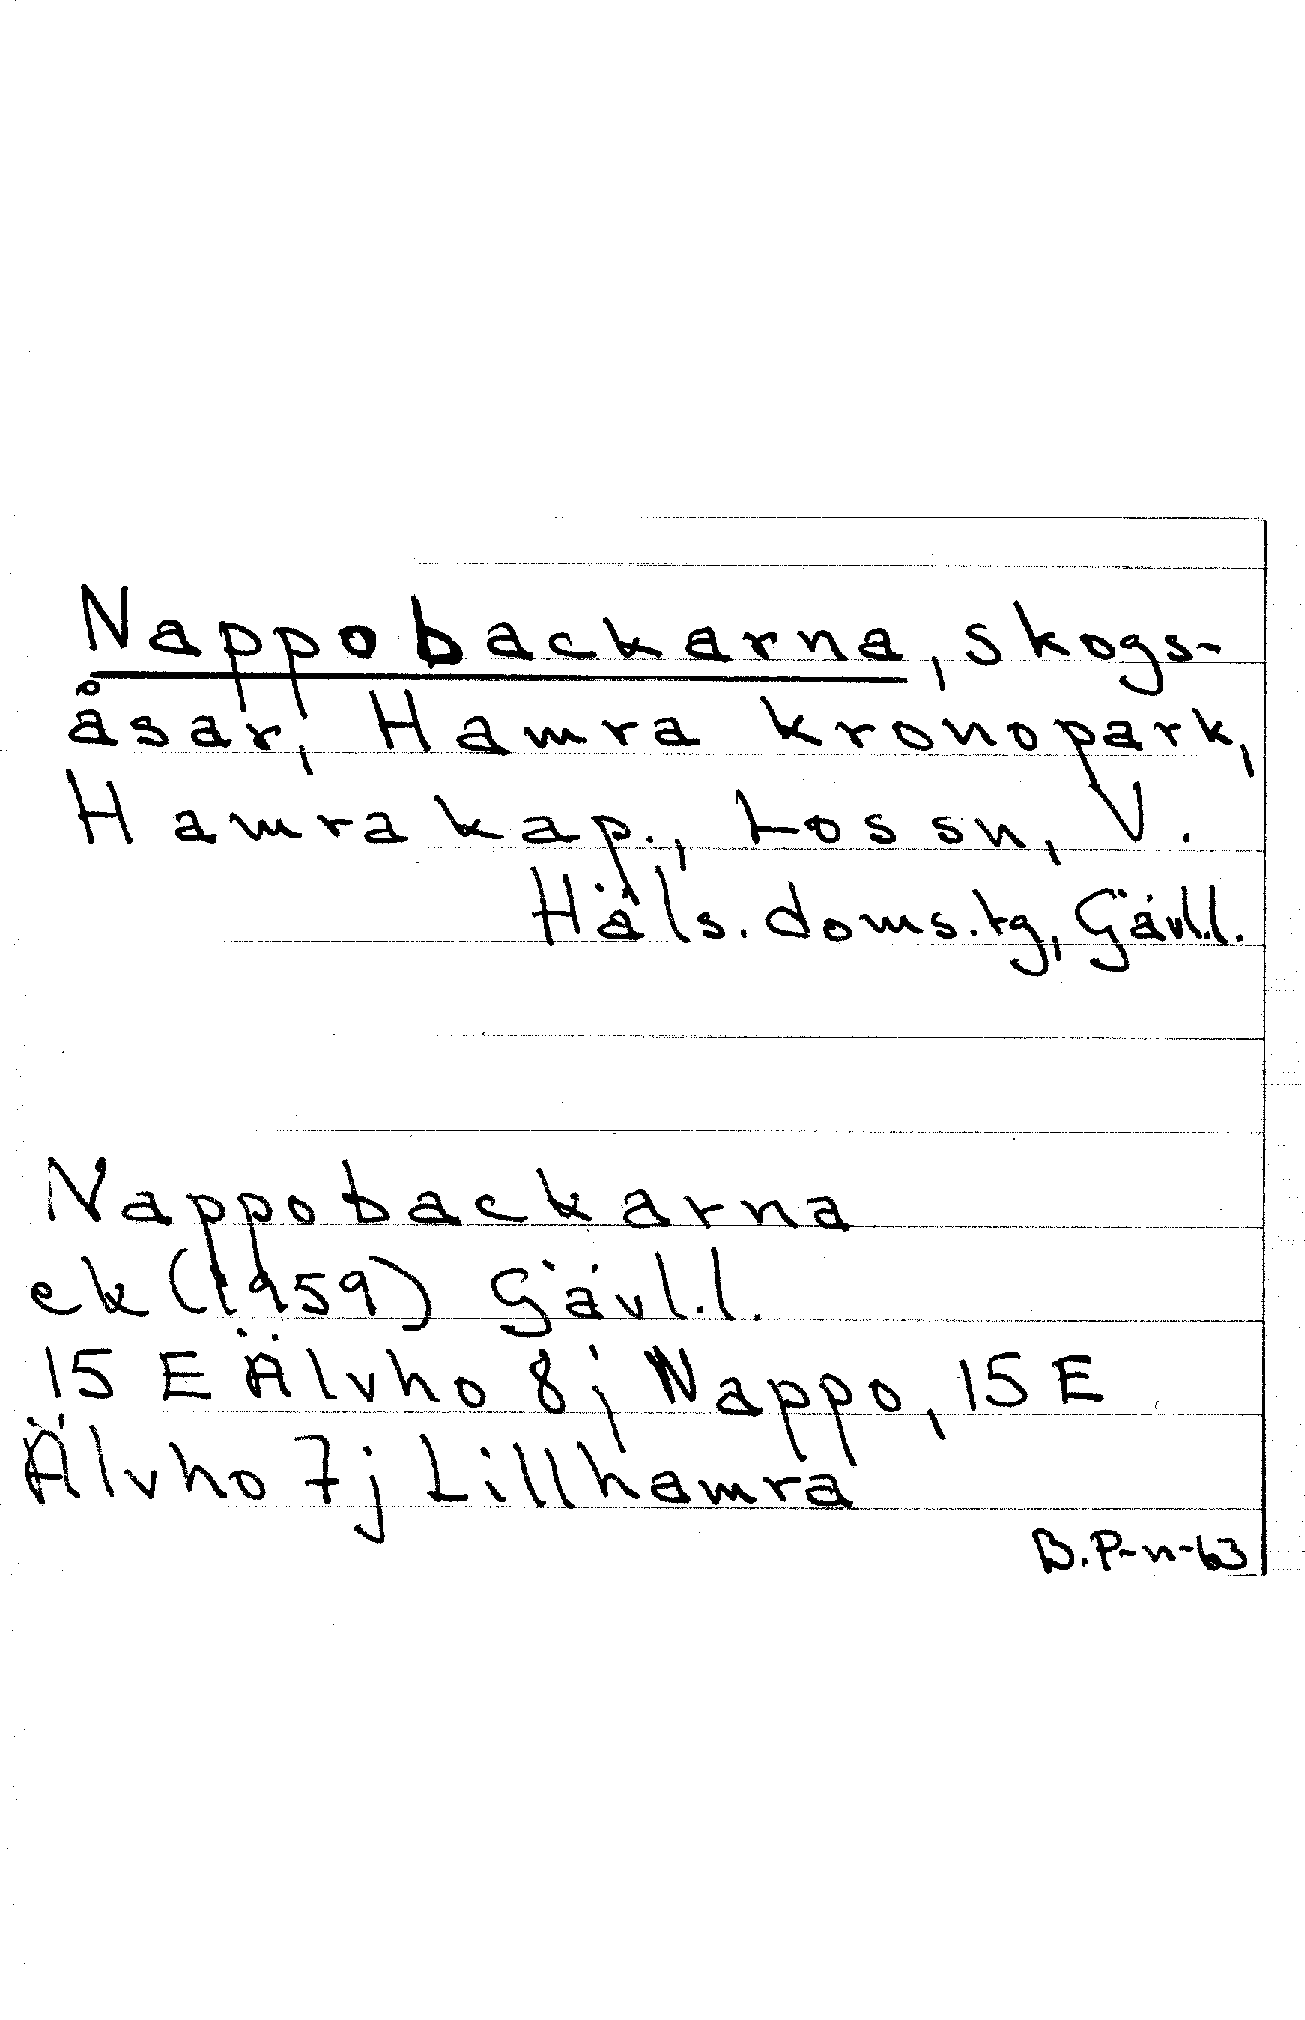 Nappobackarna, skogs-
åsar, Hamra kronopark,
Hamra kap., Los sn, V.
Häls. doms.tg, Gävl.l.
Nappobackarna
ek (1959) Gävl.l.
15 E Älvho 8j Nappo, 15 E
Älvho 7j Lillhamra
B.P-n-63